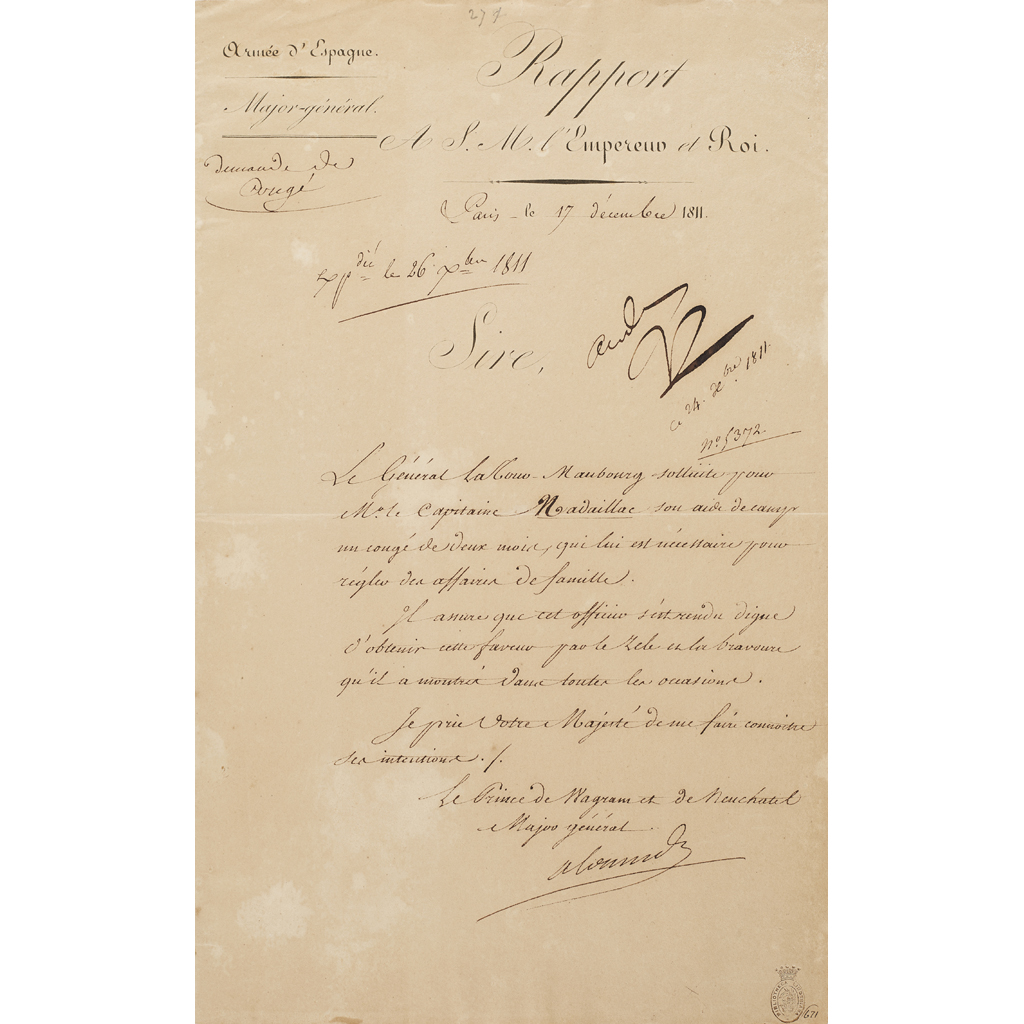 27
Armée d'Espagne.
Major-général.
demande de
Congé
Rapport
A S. M. l'Empereur et Roi.
Paris le 17 décembre 1811.
Exp dié le 26 Xbre 1811
Sire,
ce 24. Xbre 1811.
N° 5372.
Le Général LaTour Maubourg sollicite pour
Mr. le Capitaine Nadaillac son aide de camp
un congé de deux mois, qui lui est nécessaire pour
régler des affaires de famille.
Il assure que cet officier s'est rendu digne
d'obtenir cette faveur par le zele et la bravoure
qu'il a montrés dans toutes les occasions.
Je prie Votre Majesté de me faire connoitre
ses intentions ./.
Le Prince de Wagram et de Neuchatel
Major général
Alexandre
BIBLIOTHECA LINDESIANA
671